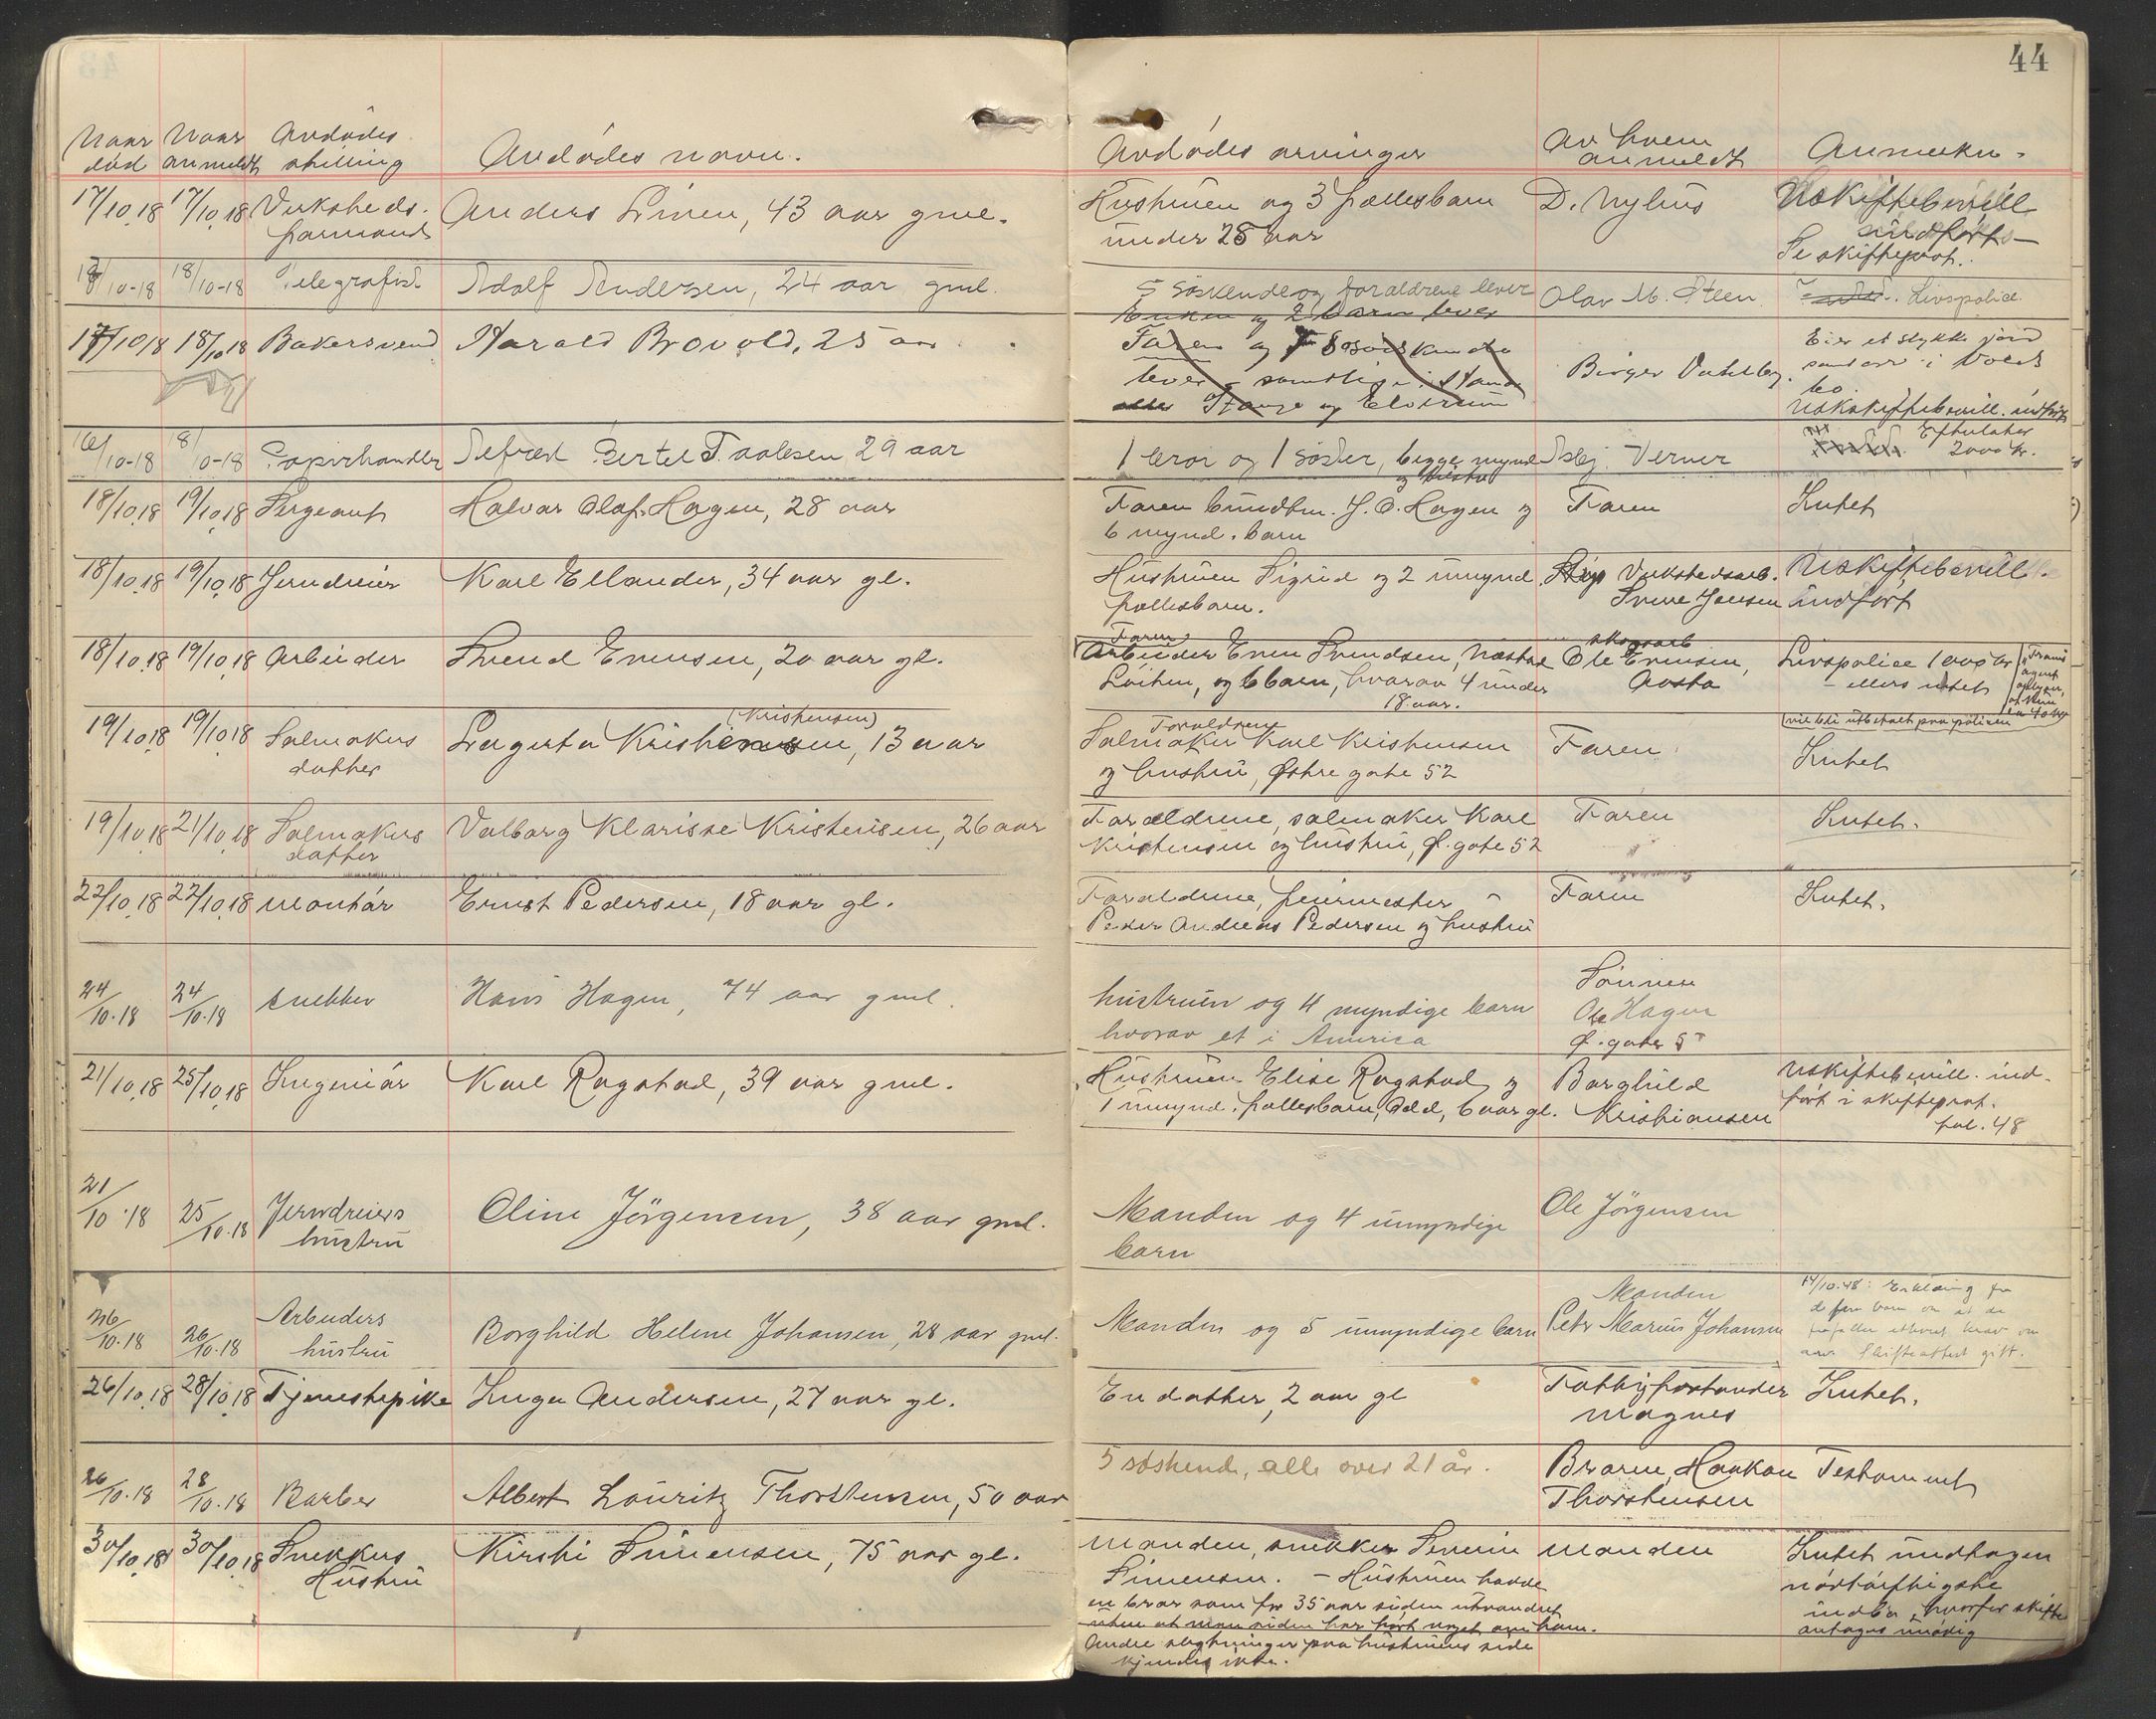 44
Naar Naar Avdødes
død anmeldt stilling Avdødes navn.
Avdødes arvinger Av hvem anmeldt Anmerkn.
17/10.18 17/10.18 Verksteds- Anders Linen, 43 aar gml. Hustruen og 3 fællesbarn D. Nylius Uskiftebevill.
formand under 25 aar indført
Se skifteprot.
18/10-18 18/10-18 Telegrafist Adolf Andersen, 24 aar gml. 5 søskende og forældrene lever Olav M. Steen. Livspolice.
Enken og 2 barn lever
17/10 18 18/10 18 Bakersvend Harald Brovold, 25 aar. Faren og 8 søskende Birger Dahlby. Eier et stykke jord
lever - samtlige i Stange sammen i Vold
Stange og Elverum Uskiftebevill. indført
16/10-18 18/10-18 Papirhandler Alfred Bertel Paulsen 29 aar 1 bror og 1 søster, begge mynd. Asbj. Verner Efterlater
2000 kr.
18/10.18 19/10.18 Sergeant Halvar Olaf Hagen, 28 aar Faren bundtm. J. O. Hagen og Faren Intet
6 mynd. barn
18/10.18 19/10.18 Jerndreier Karl Ellander, 34 aar gl. Hustruen Sigrid og 2 umynd. Verkstedsarb. Uskiftebevill.
fællesbarn. Sverre Jensen indført
18/10.18 19/10.18 Arbeider Svend Evensen, 20 aar gl. Faren
Arbeider Even Svendsen, Næstad skogsarb.
Ole Evensen, Livspolice 1000 kr
Løiten, og 6 barn, hvorav 4 under Aasta - ellers intet
18 aar.
vil bli utbetalt paa polisen
19/10.18 19/10.18 Salmakers Lagerta Kristensen, 13 aar (Kristensen) Forældrene
datter Salmaker Karl Kristensen Faren Intet
og hustru, Østre gate 52
19/10.18 21/10.18 Salmakers Valborg Klarisse Kristensen, 26 aar Forældrene, salmaker Karl Faren Intet.
datter Kristensen og hustru, Ø. gate 52
22/10.18 22/10.18 Montør Ernst Pedersen, 18 aar gl. Forældrene, feiermester Faren Intet.
Peder Andreas Pedersen og hustru
24/10.18 24/10.18 snekker Hans Hagen, 74 aar gml. hustruen og 4 myndige barn Sønnen
hvorav et i America Ole Hagen
Ø. gate 5
21/10.18 25/10.18 Ingeniør Karl Rogstad, 39 aar gml. Hustruen Elise Rogstad og Borghild Uskiftebevill. ind-
1 umynd. fællesbarn, Odd, 6 aar gl. Kristiansen ført i skifteprot.
fol. 48
21/10.18 25/10.18 Jerndreiers Oline Jörgensen, 38 aar gml. Manden og 4 umyndige Ole Jörgensen
hustru barn
26/10.18 26/10.18 Arbeiders Borghild Helene Johansen, 28 aar gml. Manden og 5 umyndige barn Manden
hustru Peter Marius Johansen
14/10.48: Erklæring fra
de fem barn om at de
frafaller ethvert krav om
arv. Skifteattest gitt.
26/10.18 28/10.18 Tjenestepike Inga Andersen, 27 aar gl. En datter, 2 aar gl Fattigforstander Intet.
Magnes
26/10.18 28/10.18 Barber Albert Lauritz Thorstensen, 50 aar 5 søskende, alle over 21 år. Broren, Haakon Testament
Thorstensen
30/10.18 30/10.18 Snekkers Kirsti Simensen, 75 aar gl. Manden, snekker Severin Manden Intet undtagen
Hustru Simensen. - Hustruen havde nødtørftigste
en bror som for 35 aar siden utvandret indbo, hvorfor skifte
uten at man siden har hørt noget om ham. antages unødig
Andre slegtninger paa hustruens side
kjendes ikke.